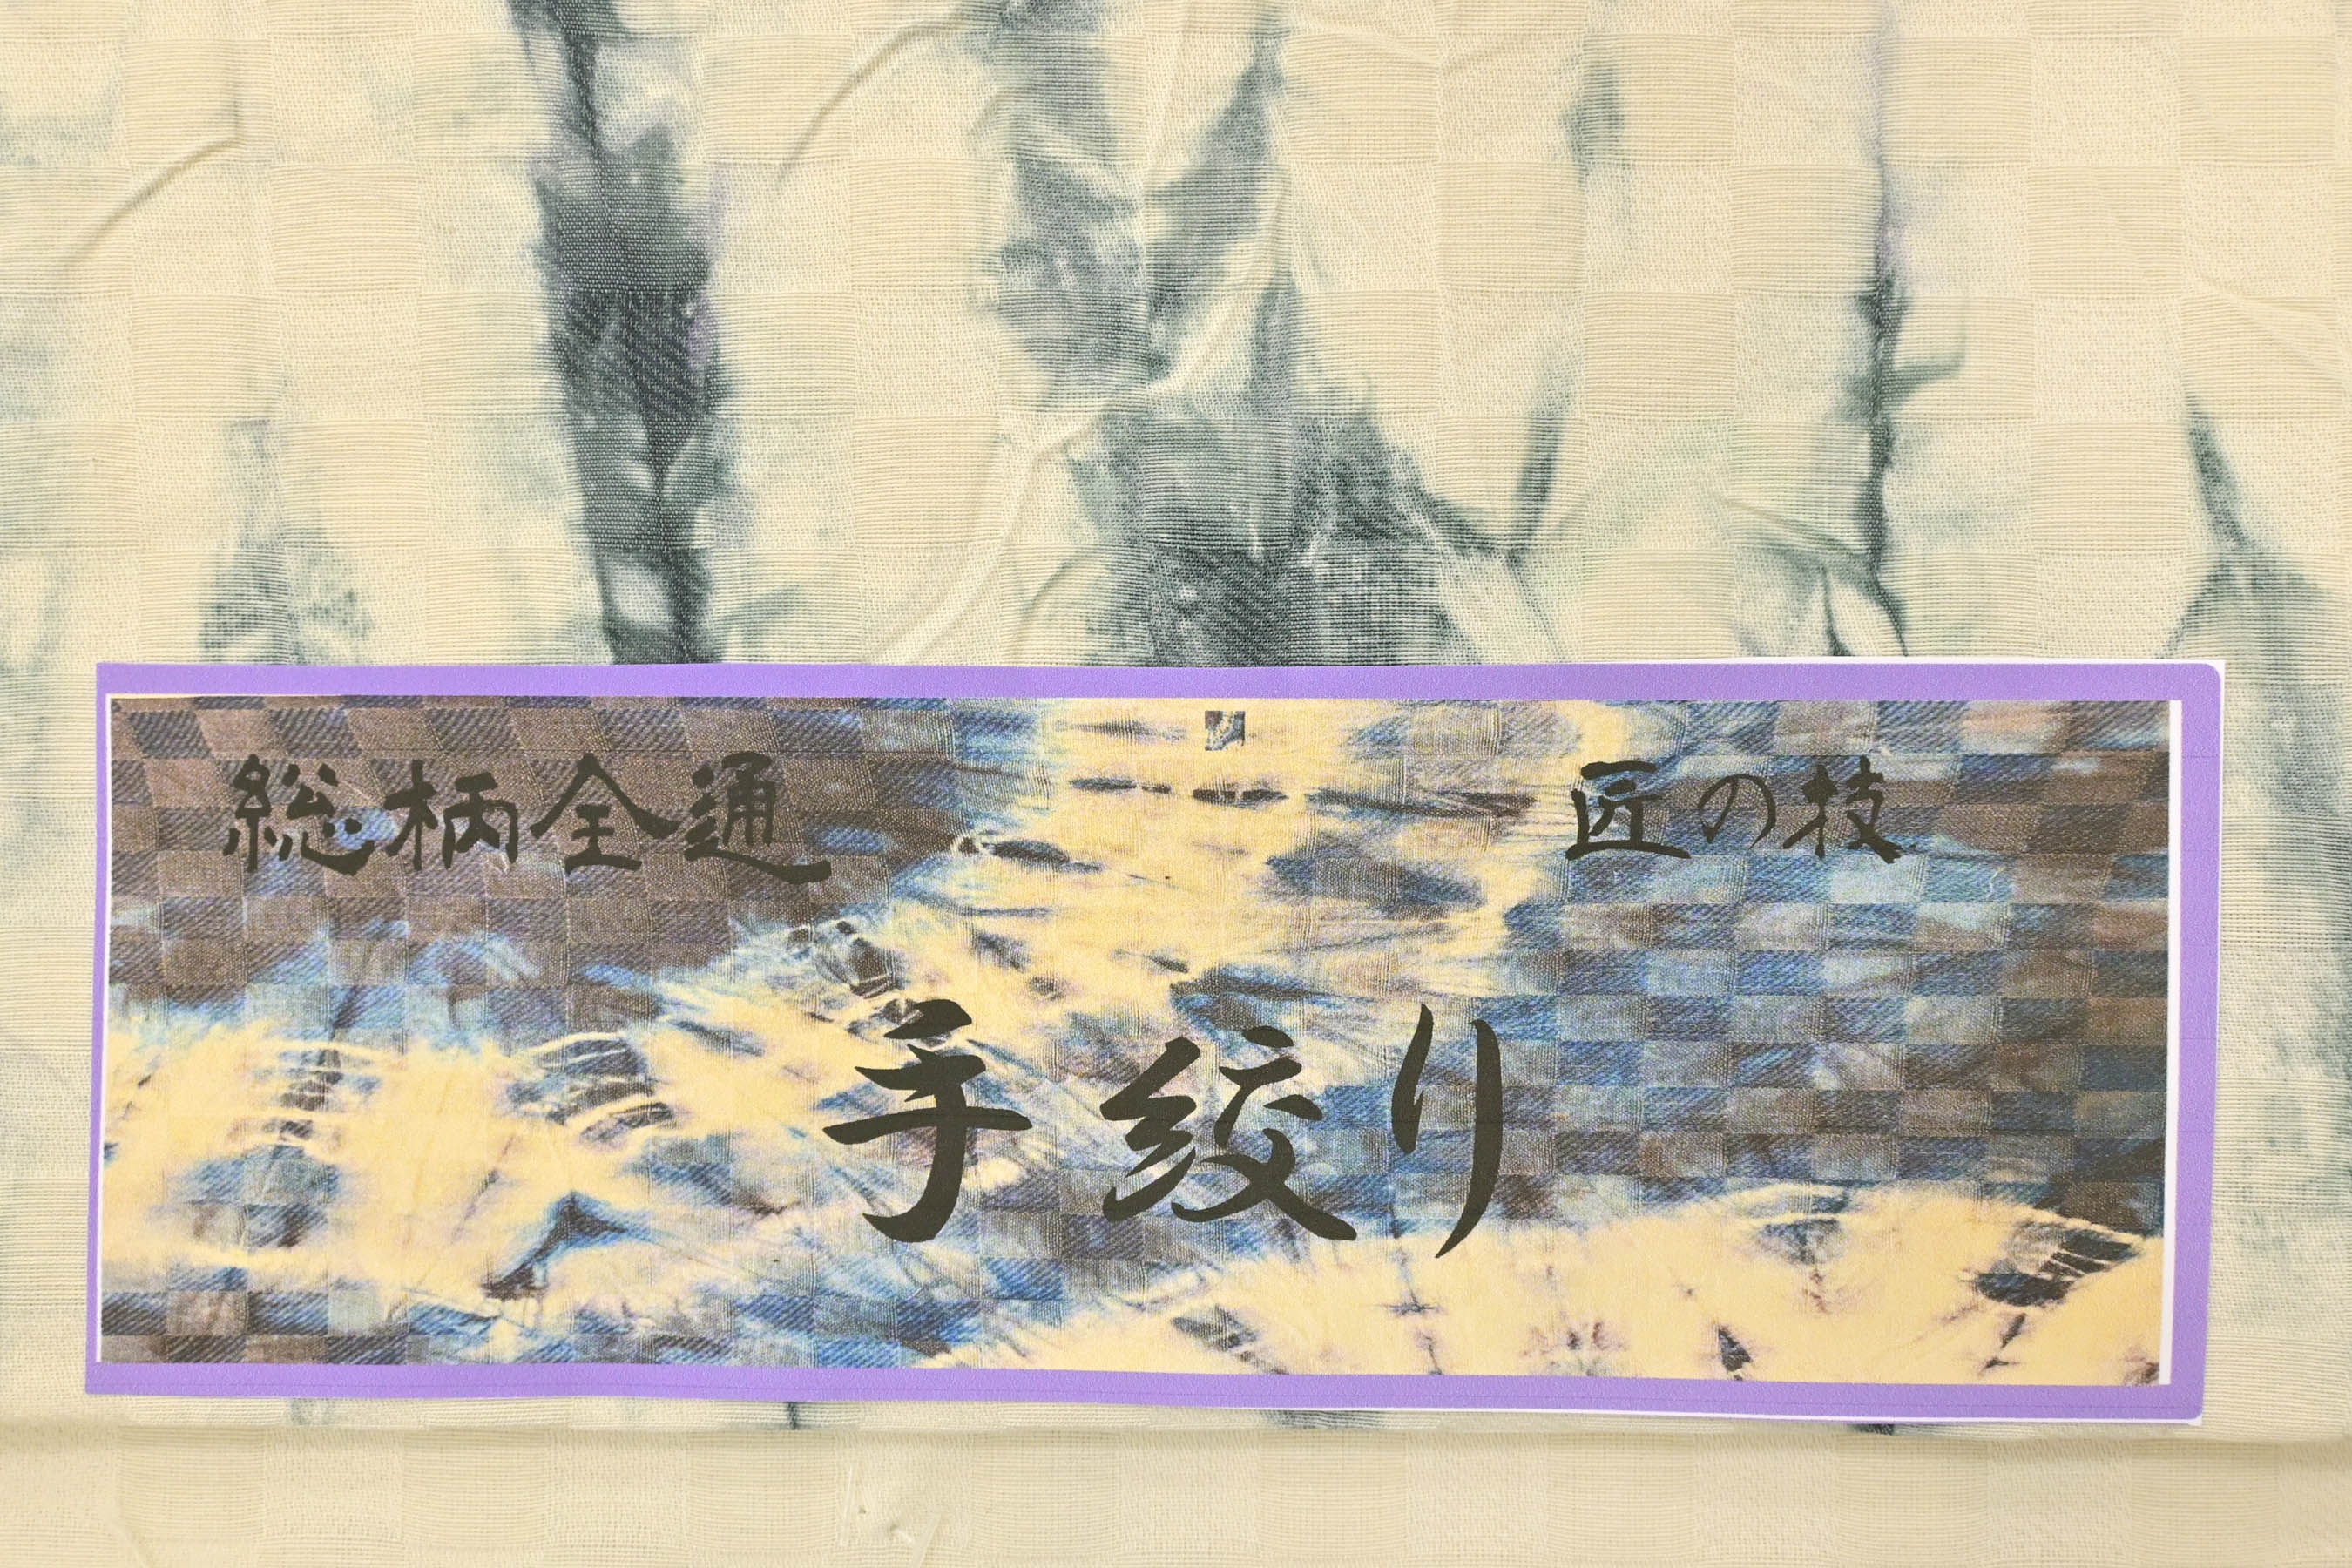 総柄全通 匠の技
手絞り